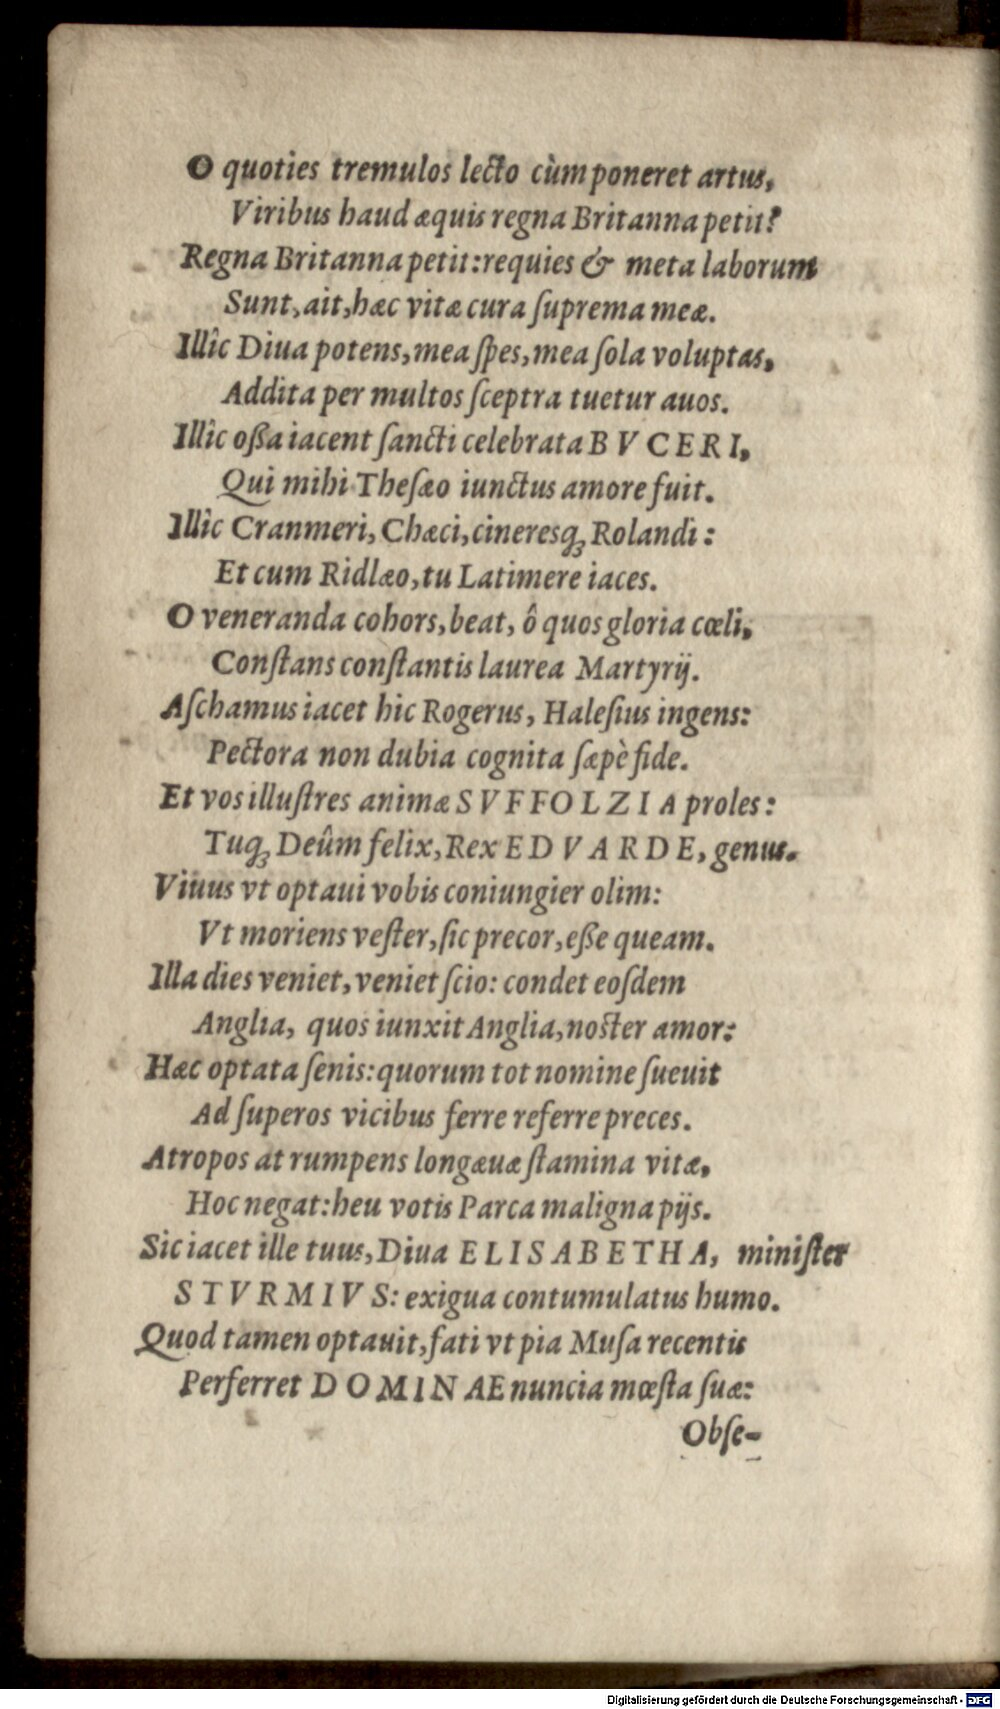 O quoties tremulos lecto cùm poneret artus,
Viribus haud æquis regna Britanna petit?
Regna Britanna petit: requies & meta laborum
Sunt, ait, hæc vitæ cura ſuprema meæ.
Illîc Diua potens, mea ſpes, mea ſola voluptas,
Addita per multos ſceptra tuetur auos.
Illîc oßa iacent ſancti celebrata BVCERI,
Qui mihi Theſæo iunctus amore fuit.
Illîc Cranmeri, Chæci, cineresq́; Rolandi:
Et cum Ridlæo, tu Latimere iaces.
O veneranda cohors, beat, ô quos gloria cœli,
Conſtans conſtantis laurea Martyrij.
Aſchamus iacet hic Rogerus, Haleſius ingens:
Pectora non dubia cognita ſæpè fide.
Et vos illuſtres animæ SVFFOLZIA proles:
Tuq́; Deûm felix, Rex EDVARDE, genus.
Viuus vt optaui vobis coniungier olim:
Vt moriens veſter, ſic precor, eße queam.
Illa dies veniet, veniet ſcio: condet eoſdem
Anglia, quos iunxit Anglia, noſter amor:
Hæc optata ſenis: quorum tot nomine ſueuit
Ad ſuperos vicibus ferre referre preces.
Atropos at rumpens longæuæ ſtamina vitæ,
Hoc negat: heu votis Parca maligna pijs.
Sic iacet ille tuus, Diua ELISABETHA, miniſter
STVRMIVS: exigua contumulatus humo.
Quod tamen optauit, fati vt pia Muſa recentis
Perferret DOMINAE nuncia mœſta ſuæ:
Obſe-
Digitalisierung gefördert durch die Deutsche Forschungsgemeinschaft - DFG